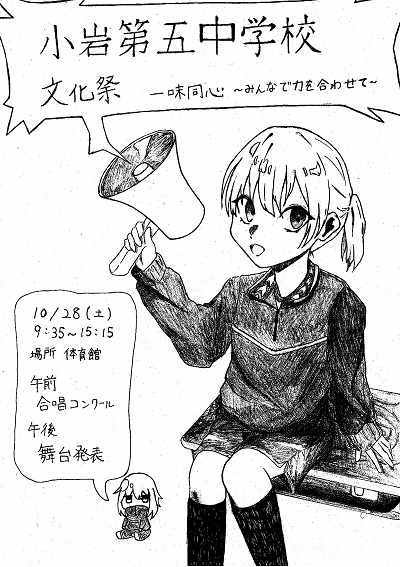 小岩第五中学校
文化祭 一味同心 ～みんなで力を合わせて～
10/28(土)
9:35～15:15
場所 体育館
午前
合唱コンクール
午後
舞台発表